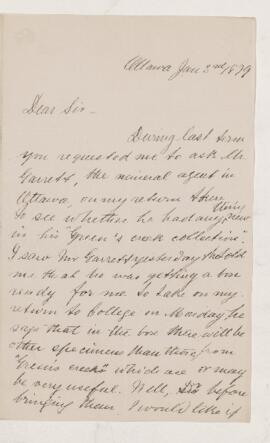 Ottawa Jan 3rd 1879
Dear Sir -
During last term
you requested me to ask Mr.
Garrett, the mineral agent in
Ottawa, on my return there
to see whether he had any
in his "Green's creek collection".
I saw Mr Garrett yesterday & he told
me that he was getting a box
ready for me to take on my
return to College on Monday, he
says that in the box there will be
other specimens than those from
"Green's creek" which are or may
be very useful. Well, Sir before
bringing them, I would like if